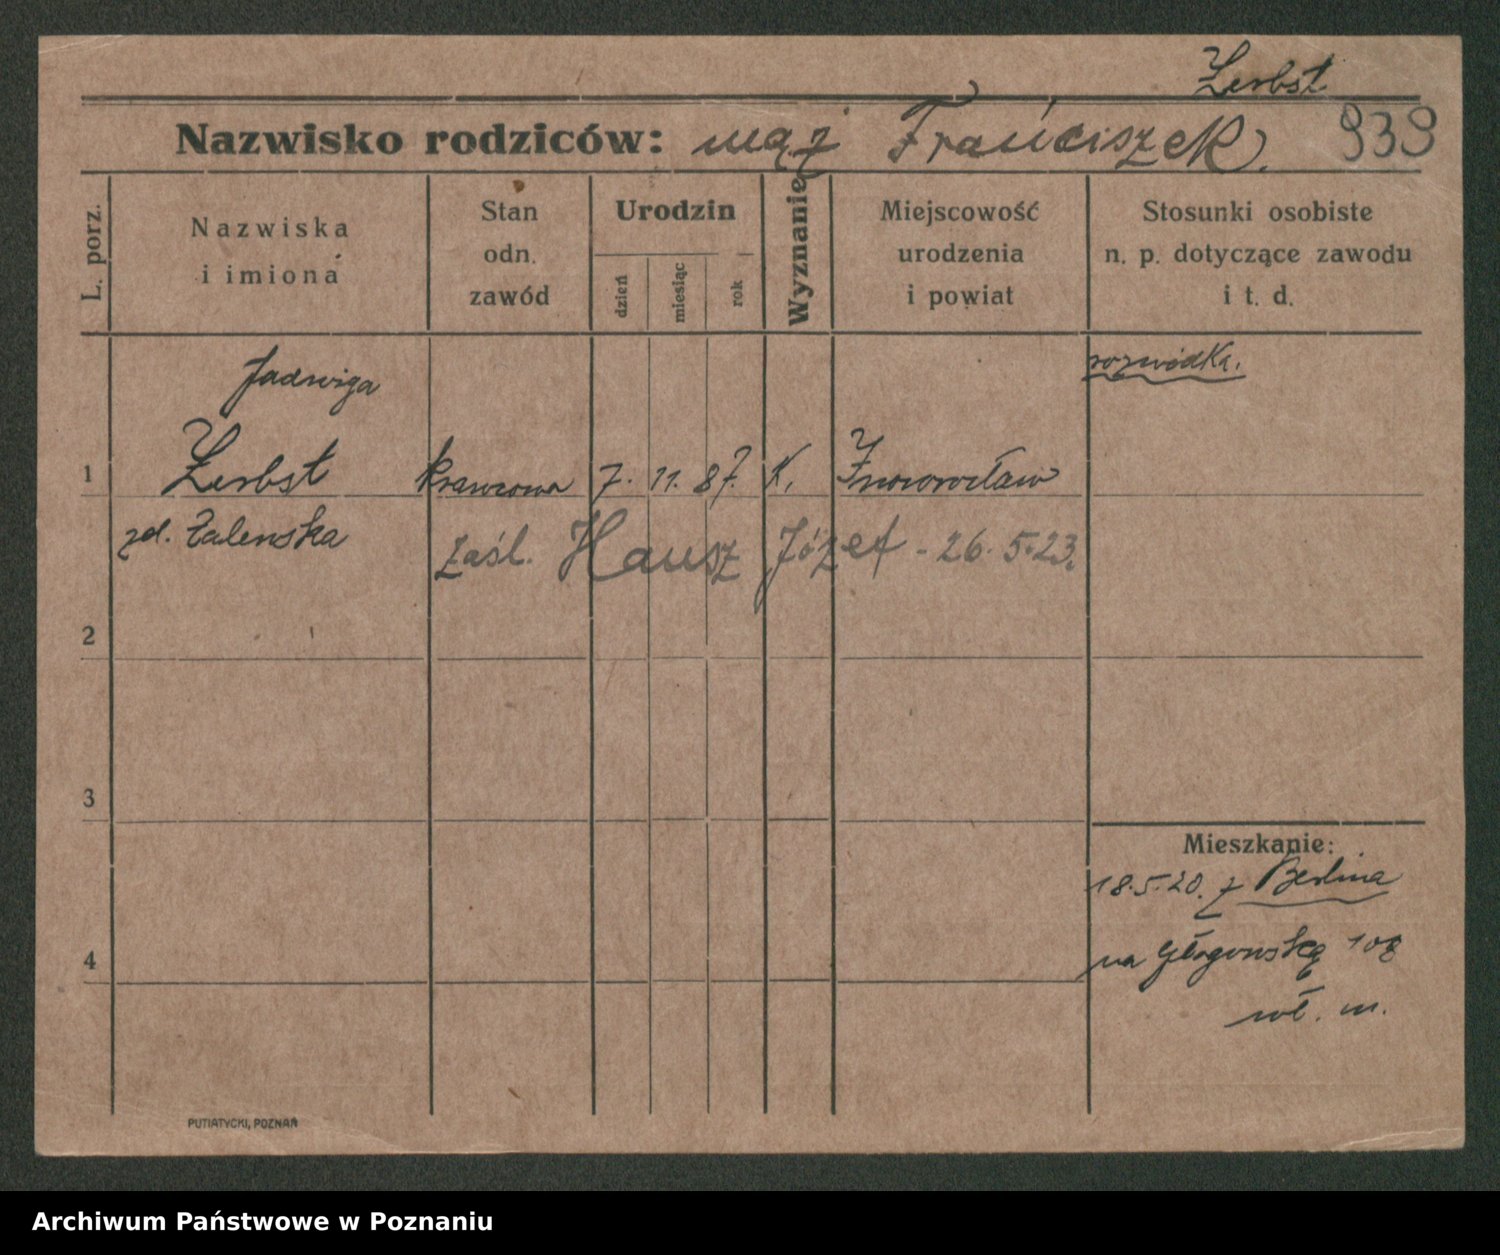 Zerbst
Nazwisko rodziców: mąż Franciszek. 939
L. porz.
Nazwiska i imiona
Stan odn. zawód
Urodzin
dzień
miesiąc
rok
Wyznanie
Miejscowość urodzenia i powiat
Stosunki osobiste n. p. dotyczące zawodu i t. d.
Jadwiga
rozwódka.
1 Zerbst krawcowa 7. 11. 87. K. Inowrocław
zd. Zalenska
zaśl. Hausz Józef - 26. 5. 23.
2
3
Mieszkanie:
18.5.20. z Berlina
4 na Głogowską 108
wł. m.
PUTIATYCKI, POZNAŃ
Archiwum Państwowe w Poznaniu